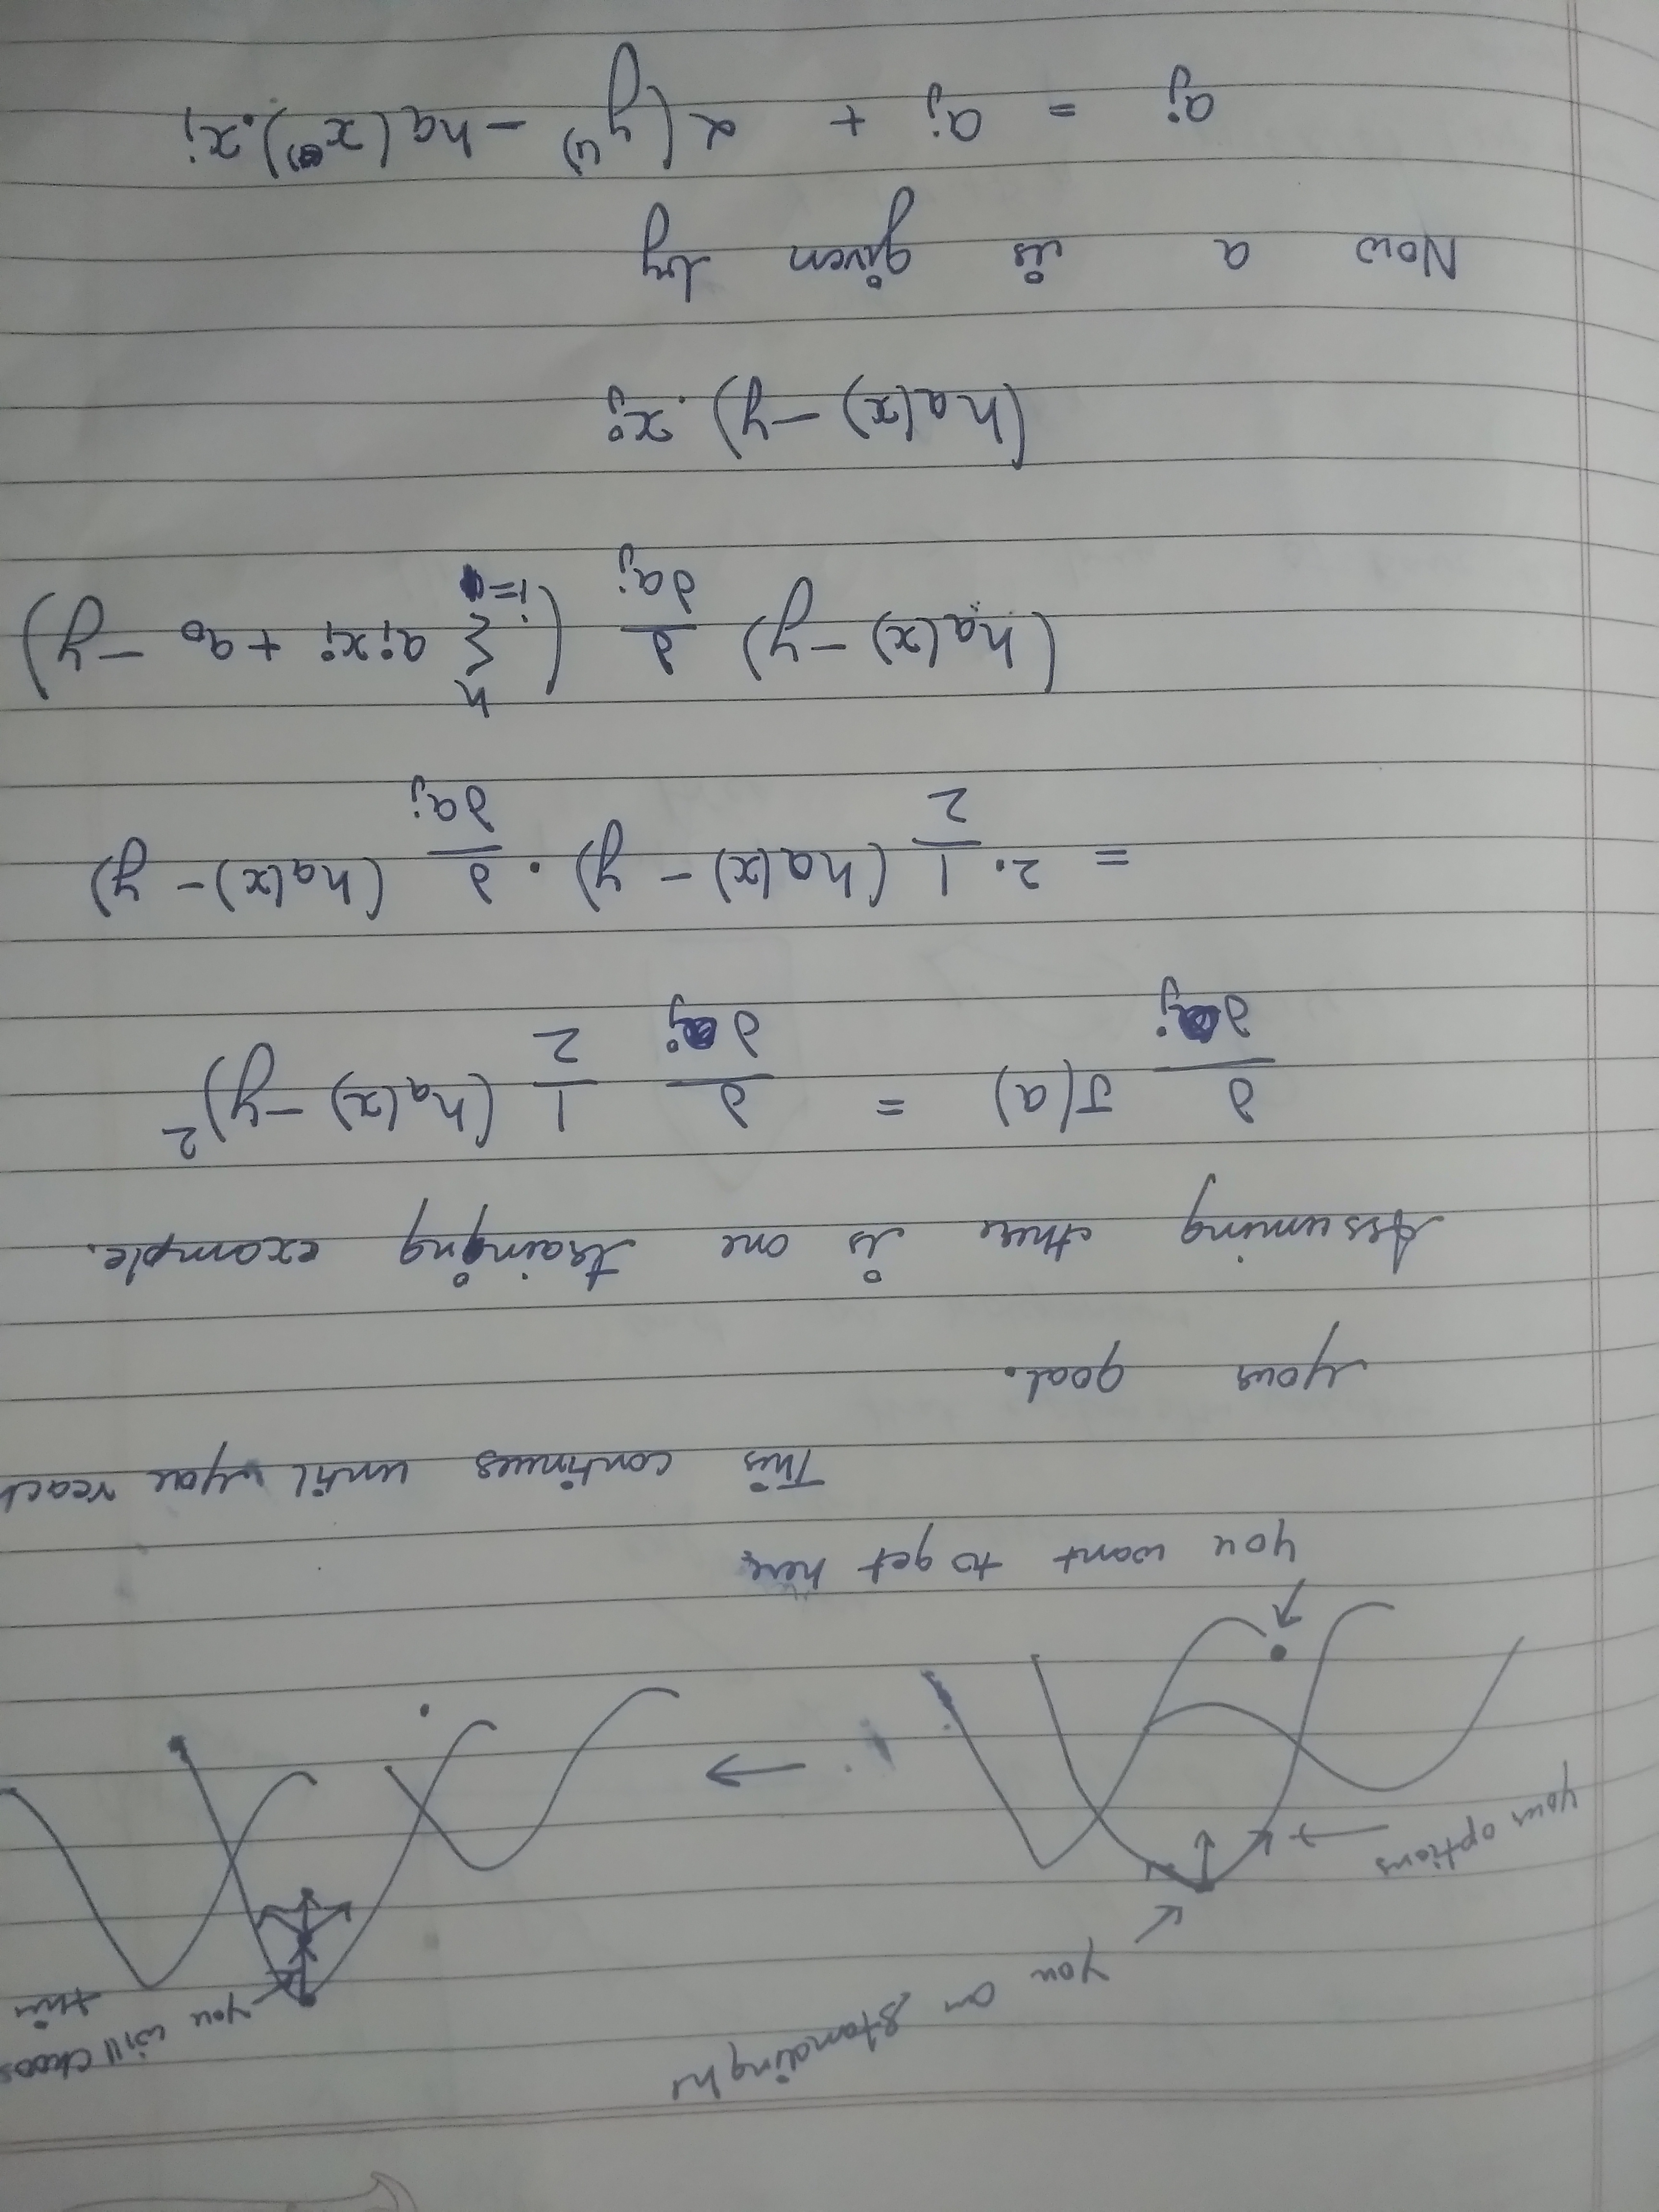 you are standing he
you will choos
this
your options
you want to get here
This continues until you reach
your goal.
Assuming there is one training example.
∂/∂aj J(a) = ∂/∂aj 1/2 (ha(x) - y)²
= 2. 1/2 (ha(x) - y) . ∂/∂aj (ha(x) - y)
(ha(x) - y) ∂/∂aj (n Σ i=1 aixi + a0 - y)
(ha(x) - y) . xj
Now a is given by
aj = aj + α(y(i) - ha(x(i)).xj